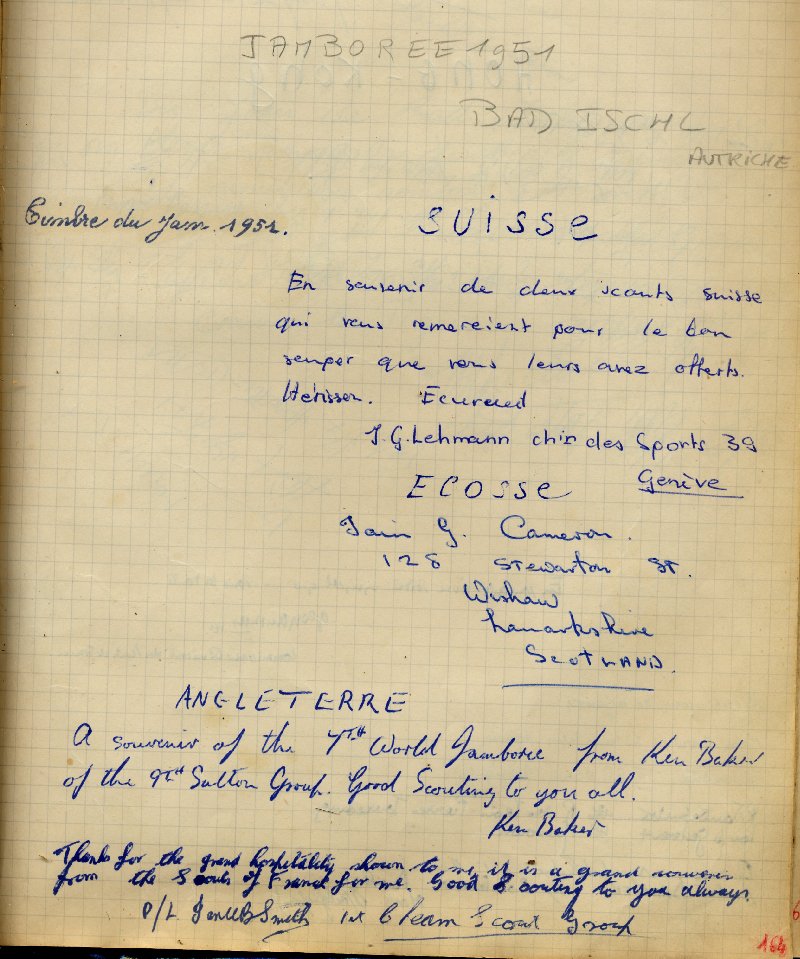 JAMBOREE 1951
BAD ISCHL
AUTRICHE
Timbre du Jam. 1951.
SUISSE
En souvenir de deux scouts suisse
qui vous remercient pour le bon
souper que vous leurs avez offerts.
Hérisson. Ecureuil
J.G. Lehmann ch in des Sports 39
Genève
ECOSSE
Iain G. Cameron.
128 Stewarton St.
Wishaw
Lanarkshire
SCOTLAND.
ANGLETERRE
A souvenir of the 7TH World Jamboree from Ken Baker
of the 9TH Sutton Group. Good Scouting to you all.
Ken Baker
Thanks for the grand hospitality shown to me it is a grand souvenir
from the Scouts of France for me. Good Scouting to you always.
P/L Smith 1st Cleam Scout Group
164